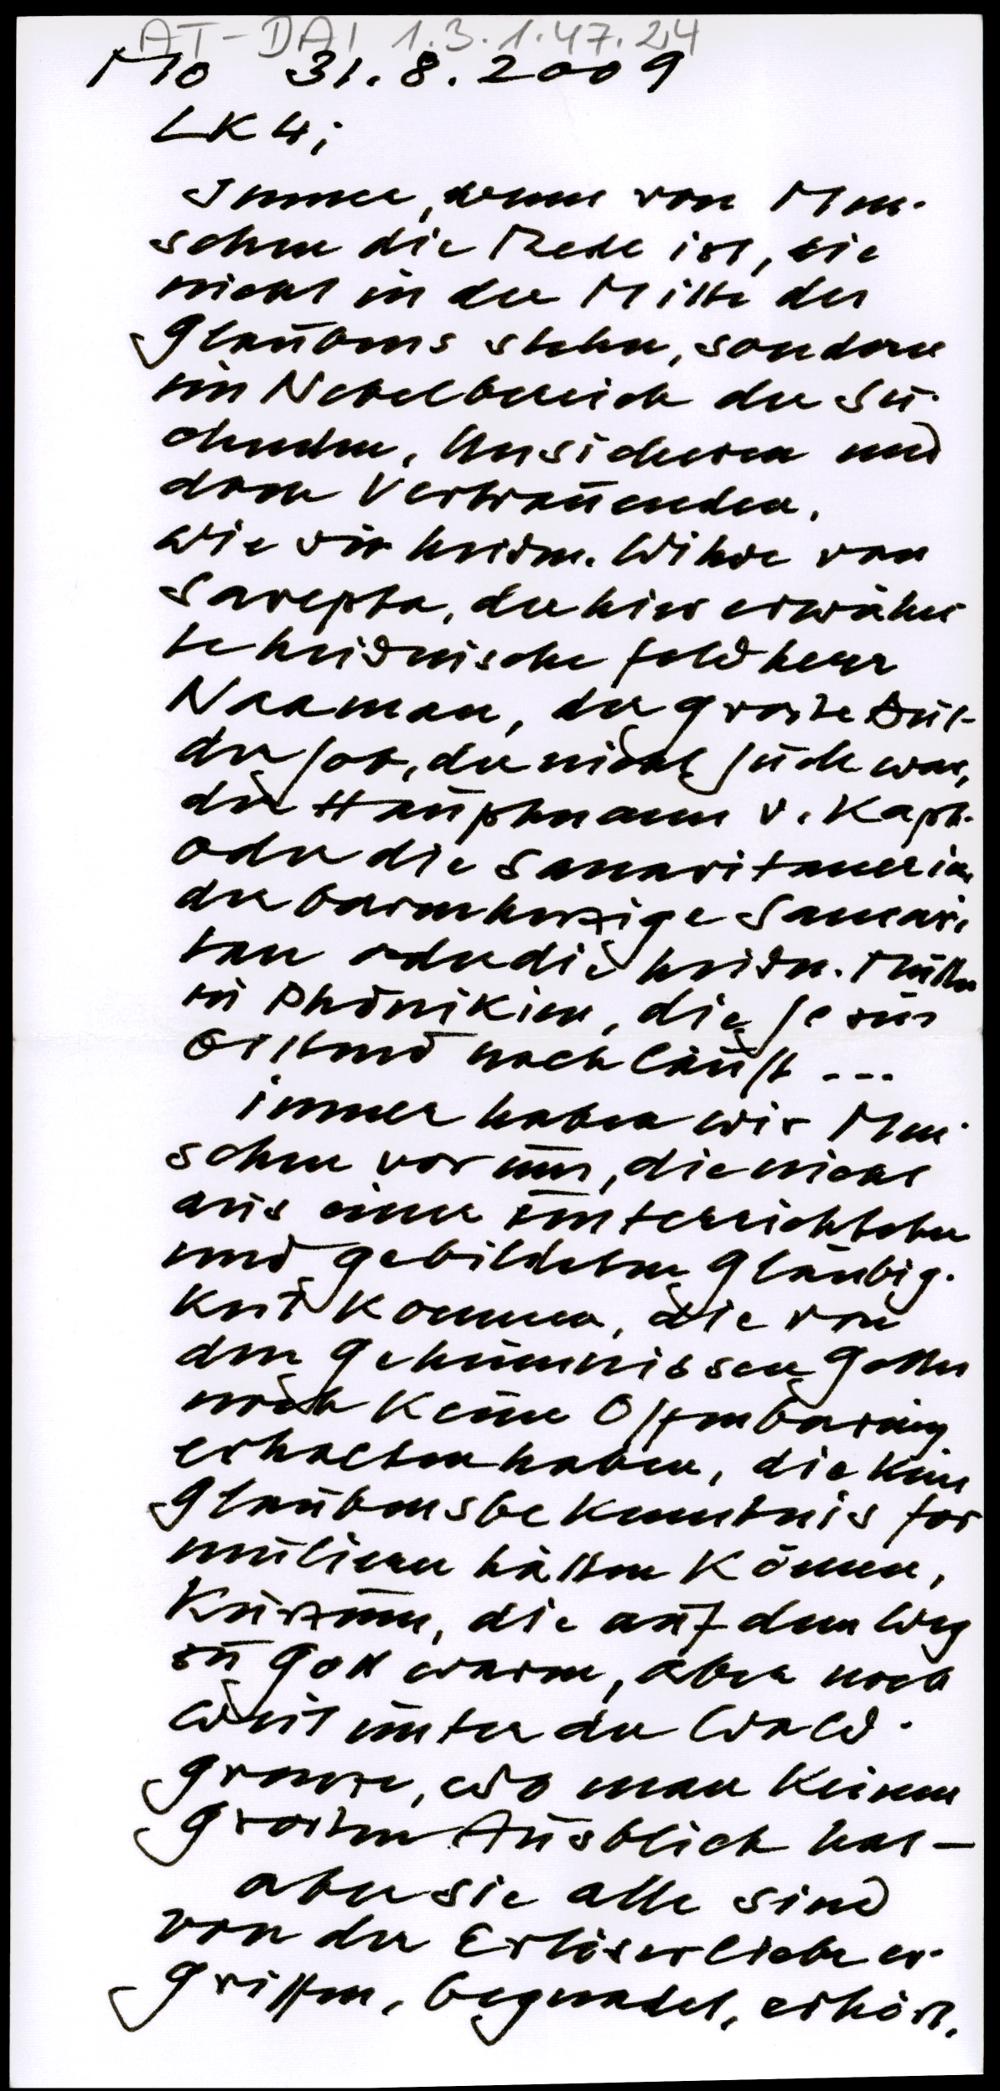 AT-DAI 1.3.1.47.24
Mo 31.8.2009
LK 4;
Immer, wenn von Men-
schen die Rede ist, die
nicht in der Mitte des
Glaubens stehen, sondern
im Nebelbereich der Su-
chenden, Unsicheren und
dann Vertrauenden.
Wie die heidn. Witwe von
Sarepta, der hier erwähn
te heidnische Feldherr
Naaman, der große Dul-
der Job, der nicht Jude war,
der Hauptmann v. Kaph.
oder die Samaritanerin,
der barmherzige Samari-
tan oder die heidn. Mutter
in Phönikien, die Jesus
bittend nachläuft ...
immer haben wir Men-
schen vor uns, die nicht
aus einer unterrichteten
und gebildeten Gläubig-
keit kommen, die von
den Geheimnissen Gottes
noch keine Offenbarung
erhalten haben, die kein
Glaubensbekenntnis for
mulieren hätten können,
kurzum, die auf dem Weg
zu Gott waren, aber noch
weit unter der Wald-
grenze, wo man keinen
großen Ausblick hat –
aber sie alle sind
von der Erlöserliebe er-
griffen, begnadet, erhört.